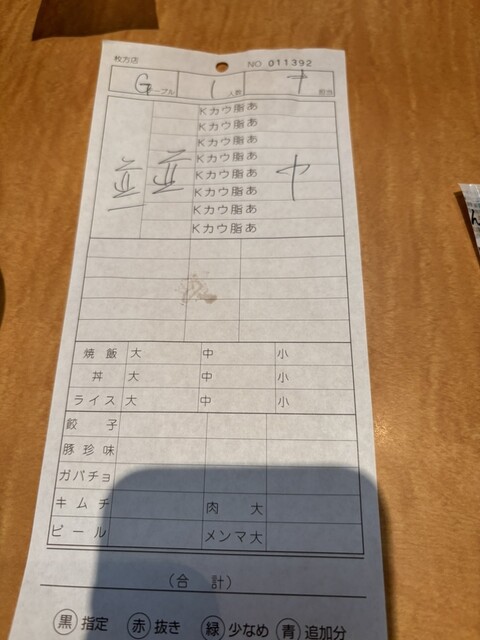 枚方店 NO 011392
G テーブル 1 人数 担当
Kカウ脂あ
Kカウ脂あ
Kカウ脂あ
Kカウ脂あ
Kカウ脂あ
Kカウ脂あ
Kカウ脂あ
Kカウ脂あ
焼飯 大 中 小
丼 大 中 小
ライス 大 中 小
餃子
豚珍味
ガパチョ
キムチ 肉大
ビール メンマ大
(合計)
黒 指定 赤 抜き 緑 少なめ 青 追加分